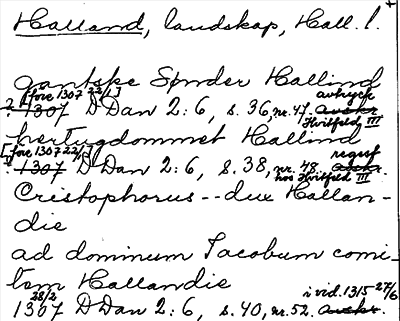 Halland, landskap, Hall. l.
gantske Sønder Hallind
? [före 1307 22/1] 1307 D Dan 2:6, s. 36, nr. 47. avtryck Hvitfeld, III
hertugdommet Hallind
[före 1307 22/1] 1307 D Dan 2:6, s. 38, nr. 48 regest hos Hvitfeld III
Cristophorus -- dux Hallan-
die
ad dominum Jacobum comi-
tem Hallandie
28/2 1307 D Dan 2:6, s. 40, nr. 52. i vid. 1315 27/6